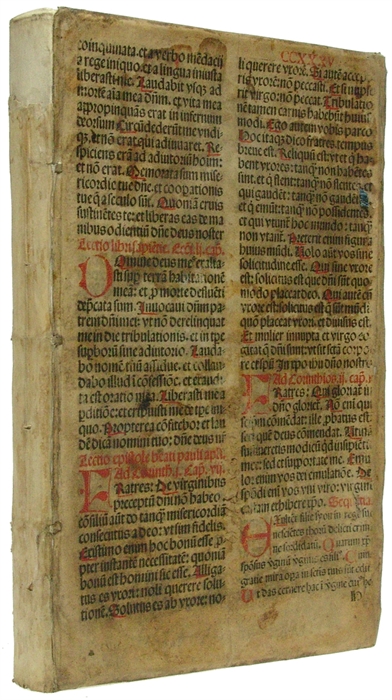 coinquinata. et a verbo mēdacij
a rege iniquo. et a lingua iniusta
liberasti me. Laudabit vsq̄ ad
mortē aīa mea dn̄m. et vita mea
appropinquās erat in infernum
deorsum. Circūdederūt me vndi-
q̄. et nō erat qui adiuuaret. Re-
spiciens erā ad adiutoriū hoīm:
et nō erat. Memorata sum mise-
ricordie tue dn̄e. et cooperationis
tue q̄ a seculo sūt. Quoniā eruis
sustinētes te: et liberas eas de ma
nibus odientiū dn̄e deus noster
Lectio libri sapiētie. Ec̄ci. lj. cap̄.
Dn̄e deus me⁹ exalta
sti sup̄ terrā habita tionē
mea: et p̄ morte defluēti
dep̄cata sum. Inuocaui dn̄m pa
trem dn̄i mei: vt nō derelinquat
me in die tribulationis. et in tp̄e
supboꝝ sine adiutorio. Lauda-
bo nomē tuū assidue. et collau
dabo illud ī cōfessiōe. et exaudi-
ta est oratio mea. Liberasti me a
pditiōe: et eripuisti me de tp̄e ini
quo. Propterea cōfitebor et lau
dē dicā nomini tuo: dn̄e deus n̄r
Lectio epistole beati pauli apl̄i
Ad Corinth. j. Cap. vij.
Fratres: De virginibus
preceptū dn̄i nō habeo.
cōsiliū aūt do tanq̄ misericordiā
consecutus a deo: vt sim fidelis.
Existimo enim hoc bonū esse p̄
pter instantē necessitatē: quoniā
bonū est homini sic esse. Alliga-
tus es vxori: noli querere solu-
tionē. Solutus es ab vxore: no-
CCXXXV
li querere vxorē. Si autē accepe-
ris vxorē: nō peccasti. Et si nupse
rit virgo: nō peccat. Tribulatio
nē tamen carnis habebūt huius
modi. Ego autem vobis parco
Hoc itaq̄ dico fratres. tempus
breue est. Reliquū est: vt et q̄ ha
bent vxores: tanq̄ non habētes
sint. et q̄ flent: tanq̄ nō flentes: et
qui gaudēt: tanq̄ nō gaudētes.
et q̄ emūt: tanq̄ nō possidentes.
et qui vtunt̄ hoc mundo: tanq̄
non vtant̄. Preterit enim figura
huius mūdi. Volo aūt vos sine
solicitudine esse. Qui sine vxore
est: solicitus est que dn̄i sūt quo
mō placeat deo. Qui autē cū
vxore est: solicitus est q̄ sūt mūdi:
quō placeat vxori. et diuisus est.
Et mulier innupta et virgo co-
gitat q̄ dn̄i sunt: vt sit sctā corpo
re et spū. In xp̄o ihū dn̄o nostro
Ad Corinthios ij. cap̄.
Fratres: Qui gloriat̄ in
dn̄o gloriet̄. Nō eni qui
seipm̄ cōmēdat: ille pbatus est:
sed quē deus cōmendat. Vtinā
sustineretis modicū qd insipiētie
mee: sed et supportate me. Emu
lor enim vos dei emulatiōe. De
spōdi em̄ vos vni viro: virginē
castam exhibere xp̄o. Sequētia